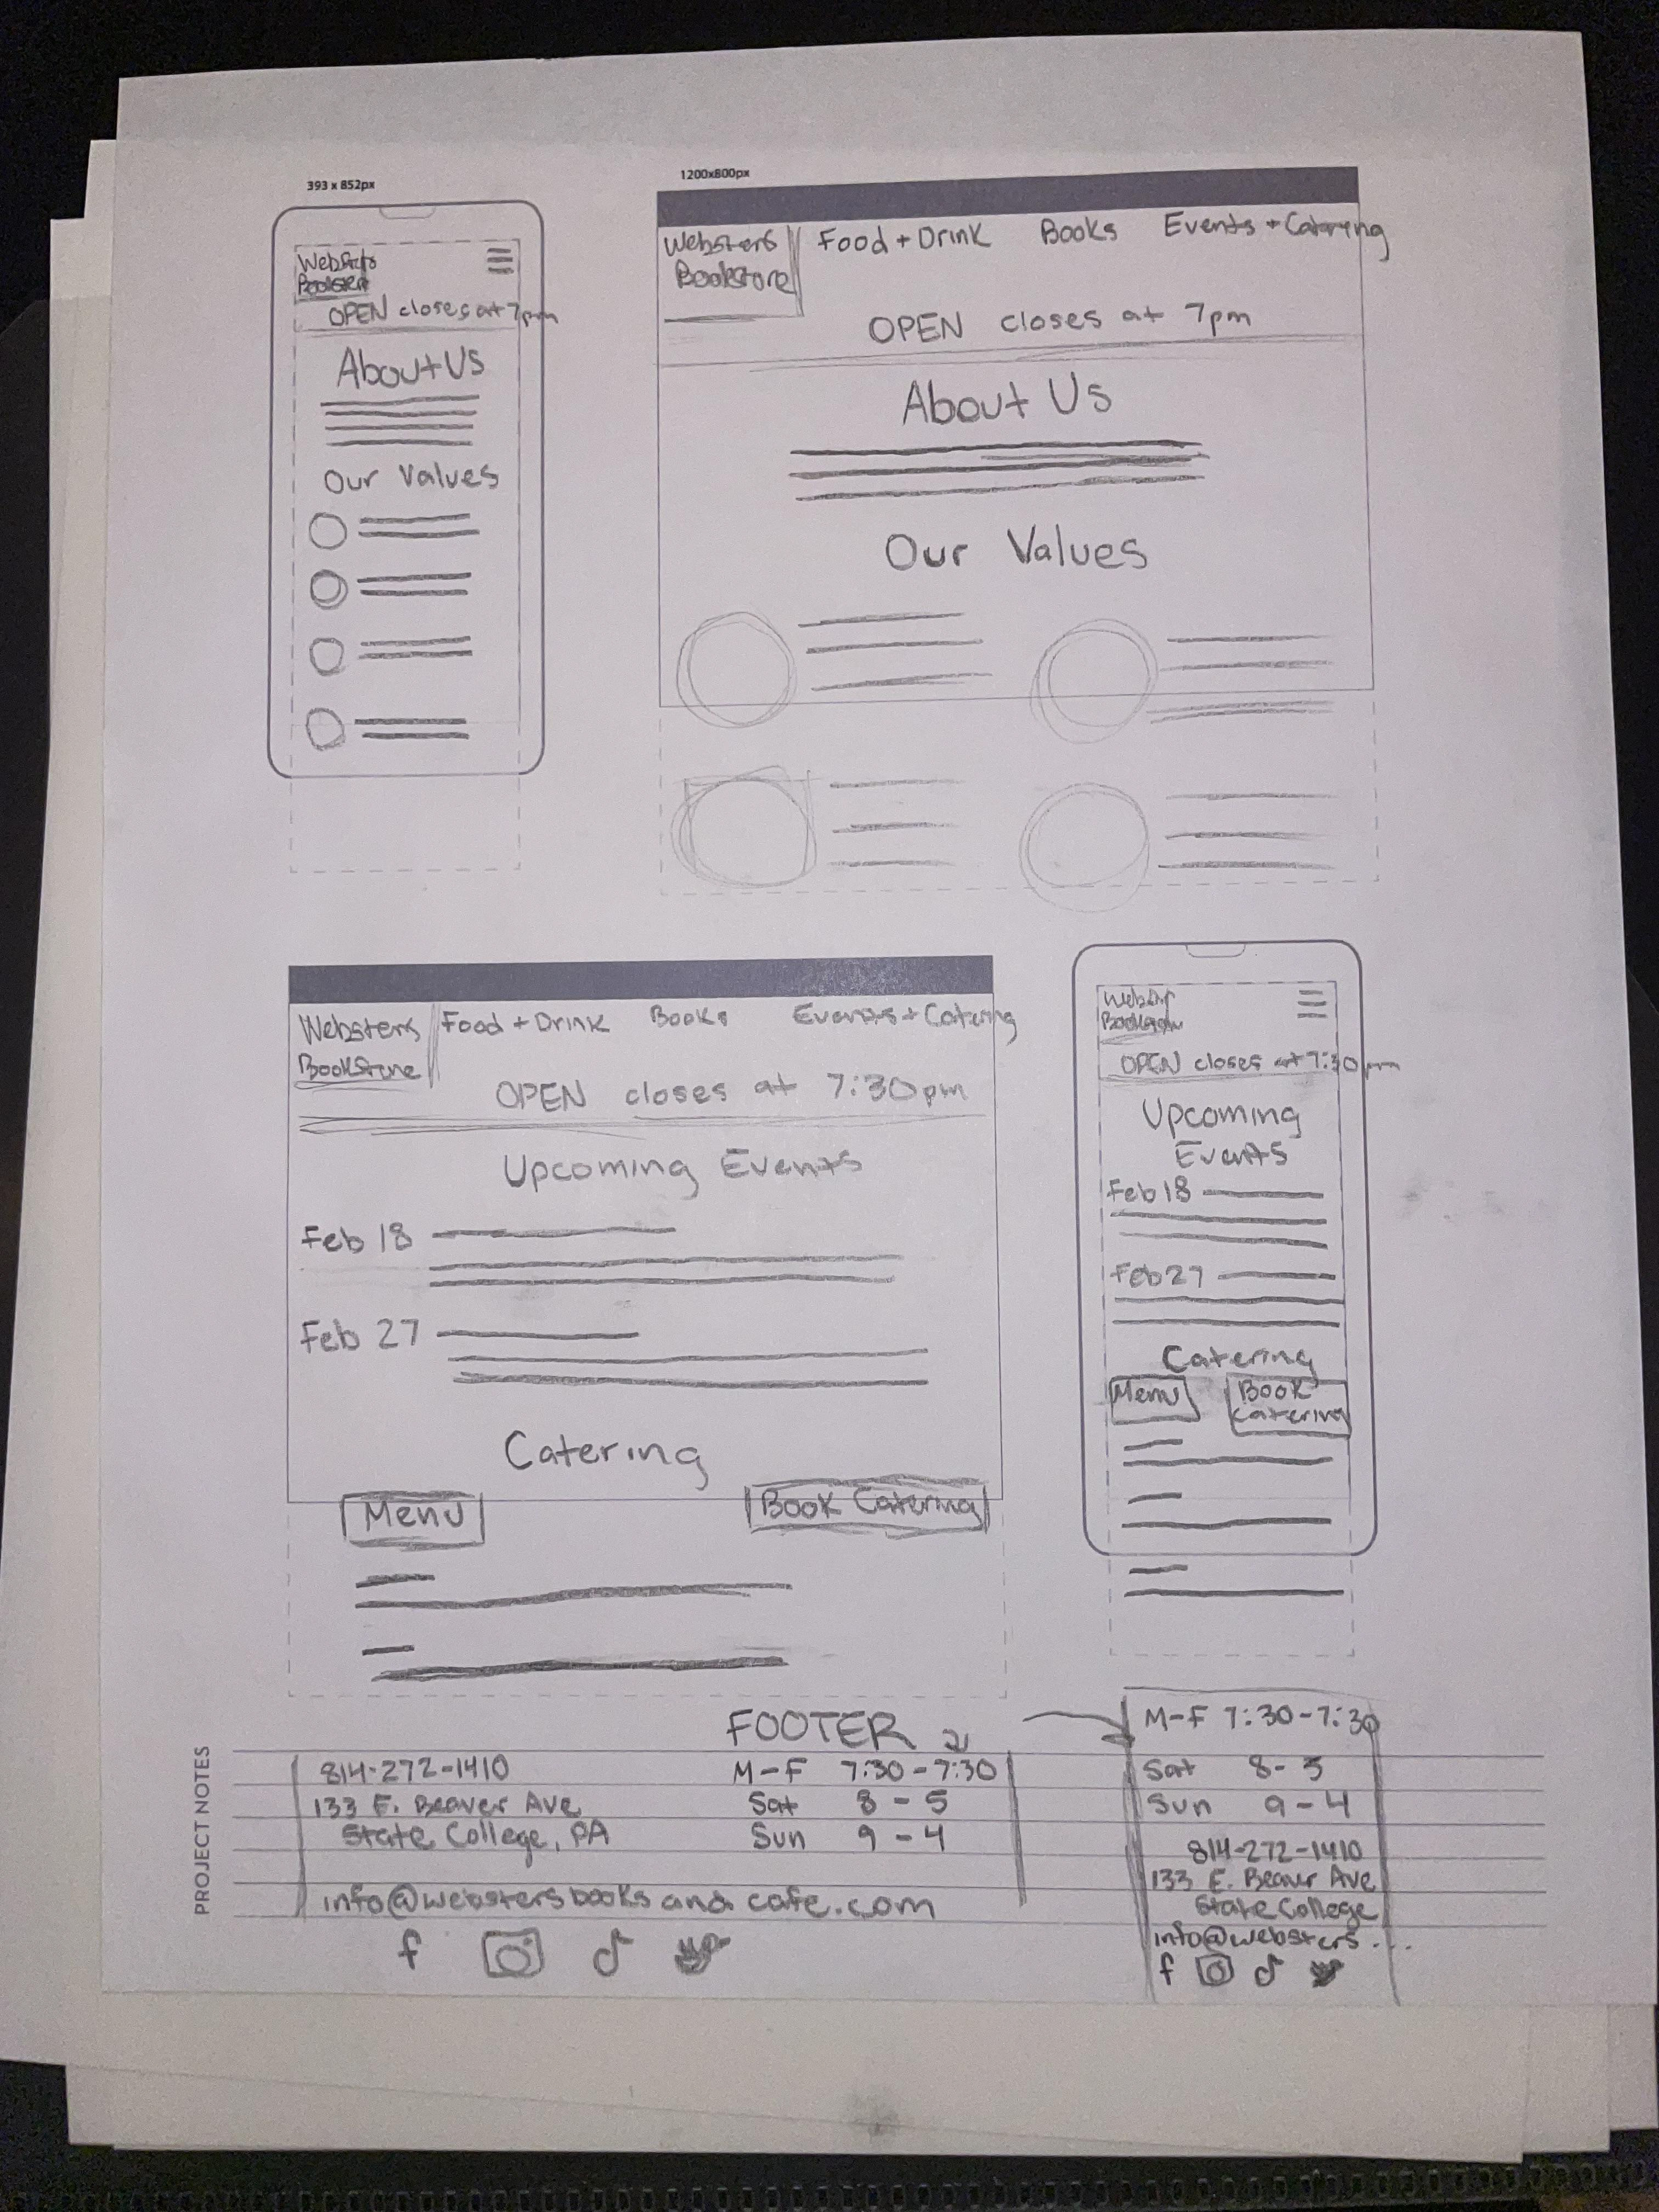 393 x 852px
Websters
Bookstore
OPEN closes at 7pm
About Us
Our Values
1200x800px
Websters
Bookstore
Food + Drink
Books
Events + Catering
OPEN closes at 7pm
About Us
Our Values
Websters
Bookstore
Food + Drink
Books
Events + Catering
OPEN closes at 7:30pm
Upcoming Events
Feb 18
Feb 27
Catering
Menu
Book Catering
OPEN closes at 7:30pm
Upcoming
Events
Feb 18
Feb 27
Catering
Menu
Book
Catering
PROJECT NOTES
FOOTER
814-272-1410
133 E. Beaver Ave
State College, PA
M-F 7:30-7:30
Sat 8-5
Sun 9-4
info@webstersbooksandcafe.com
f
M-F 7:30-7:30
Sat 8-5
Sun 9-4
814-272-1410
133 E. Beaver Ave
State College
info@websters...
f